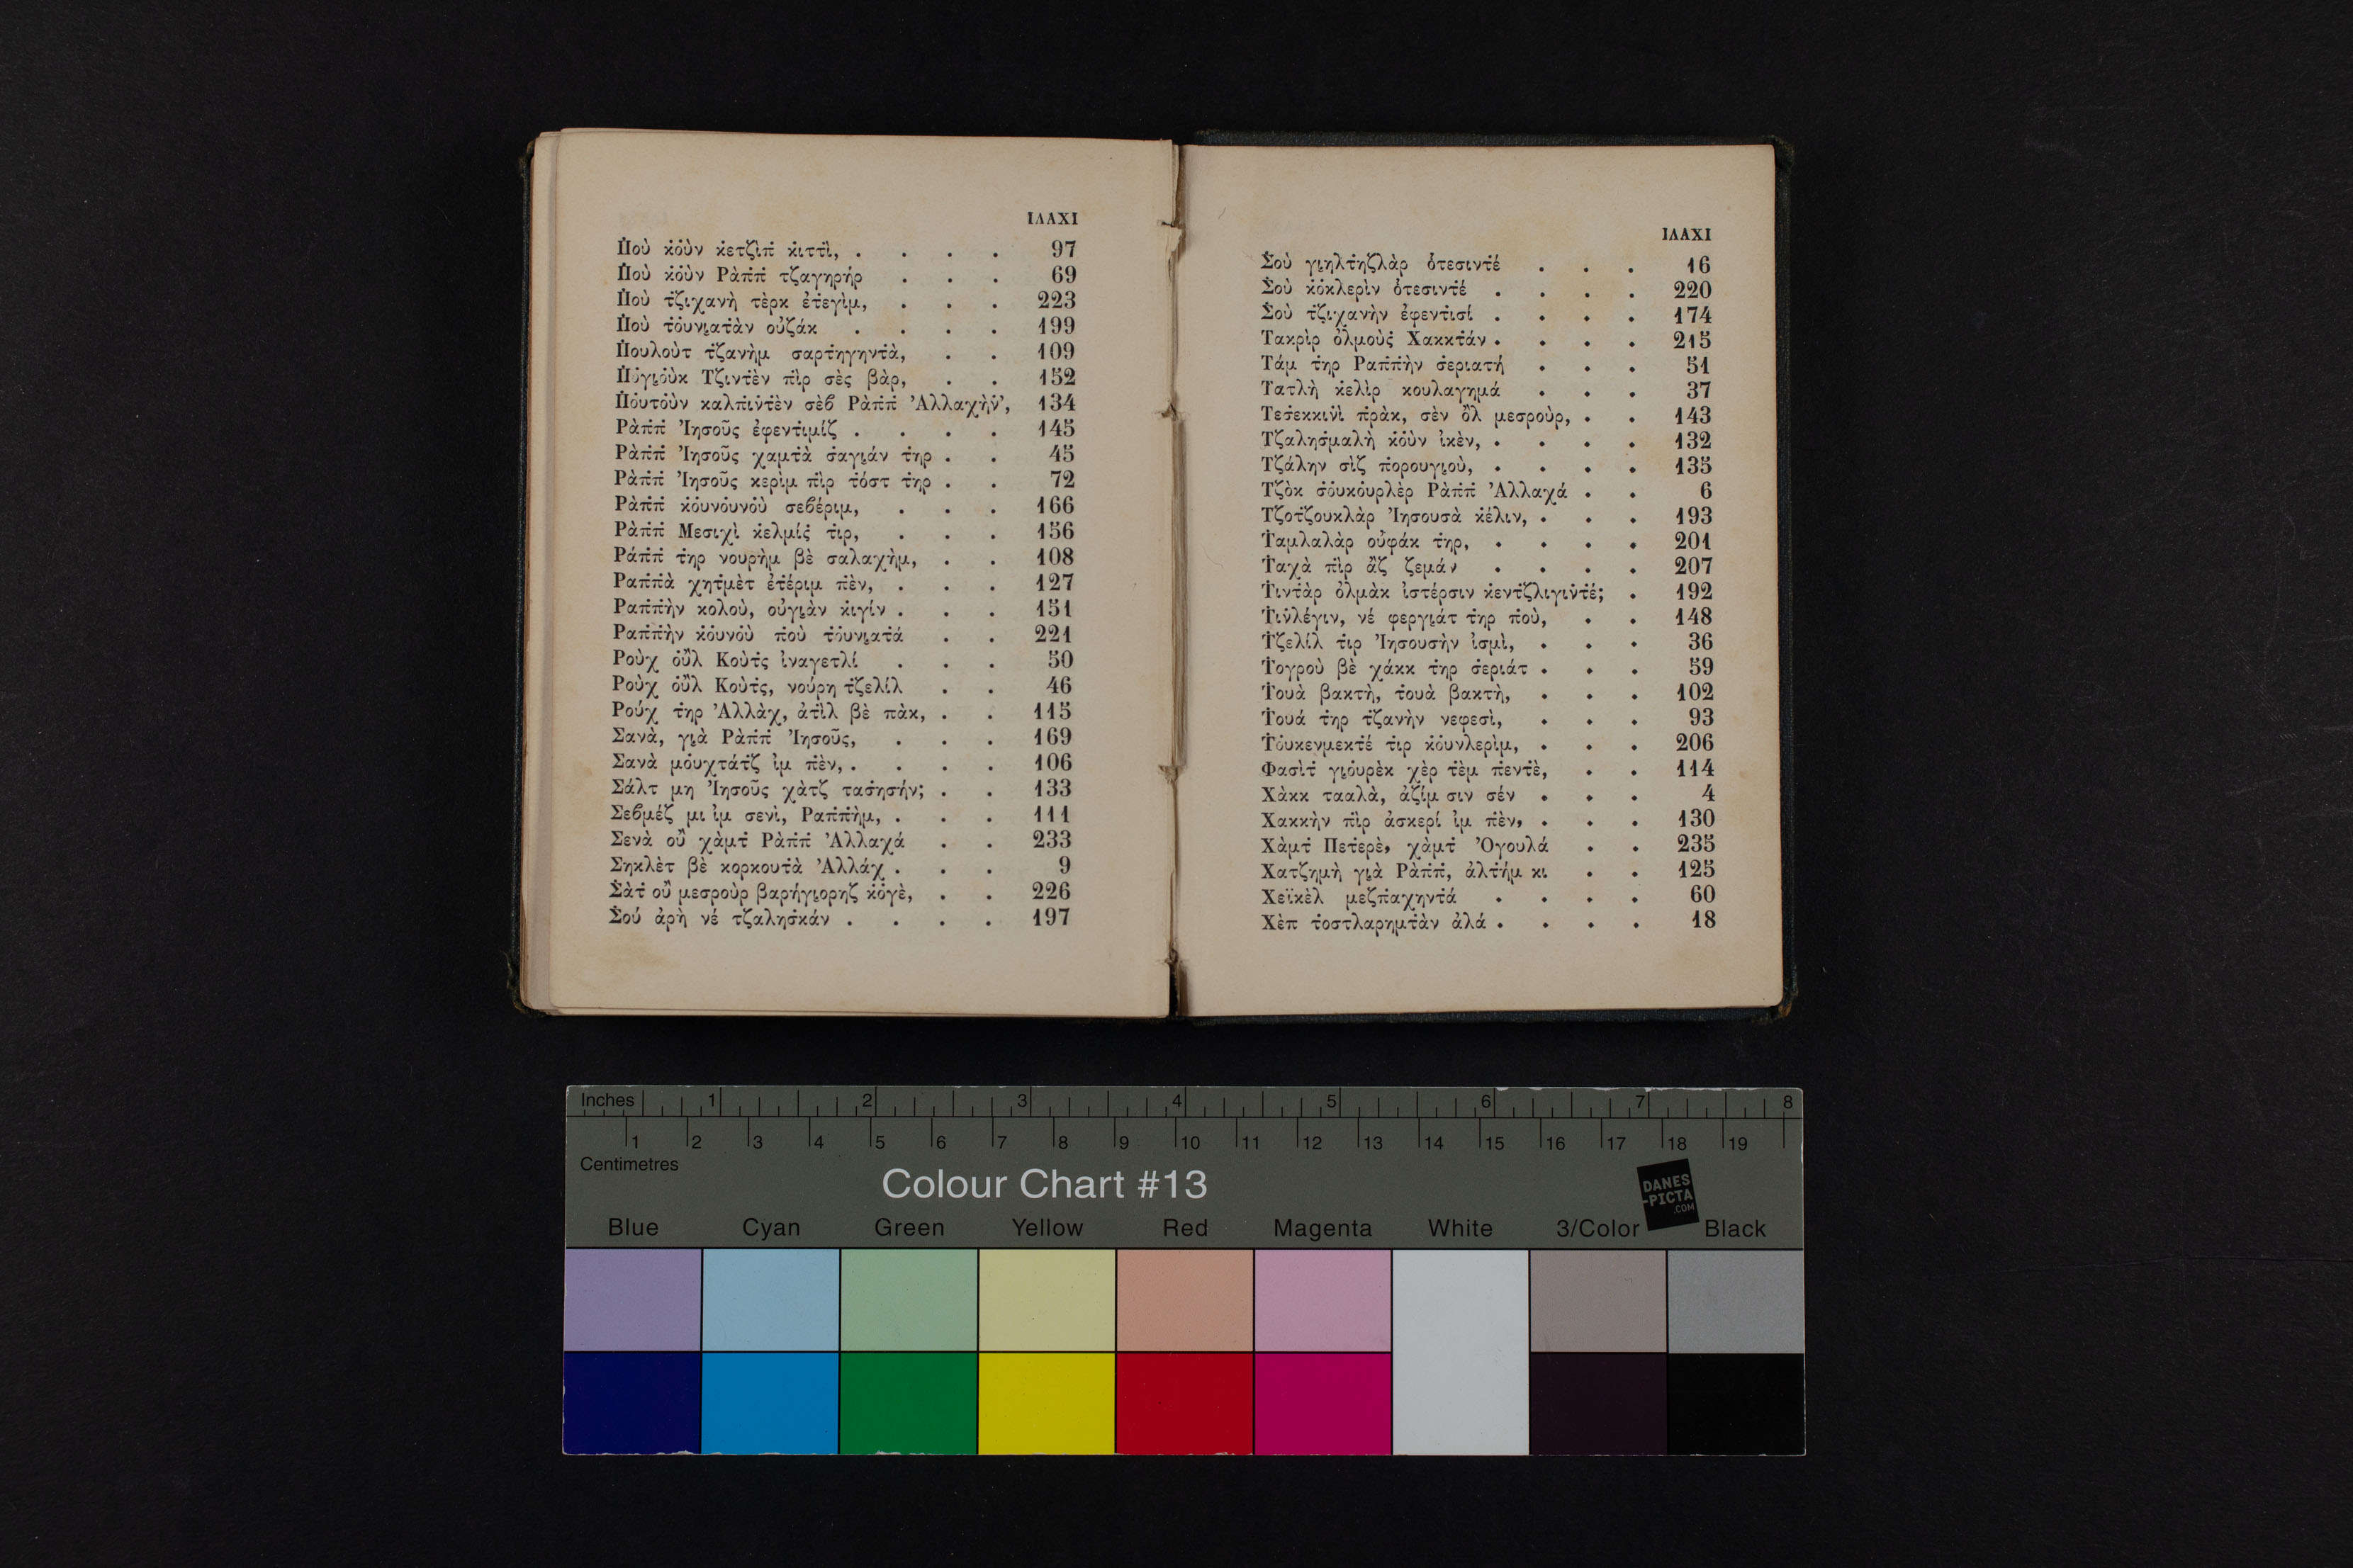 ΙΛΑΧΙ
Π̇οὺ κ̇ὸὺν κ̇ετζὶπ̇ κ̇ιττὶ, . . . . 97
Π̇οὺ κ̇ὸὺν Ρὰπ̇π̇ τζαγηρήρ . . . 69
Π̇οὺ τζιχανὴ τὲρκ ἐτ̇εγὶμ, . . . 223
Π̇οὺ τ̇ο̇υνι̯ατ̇ὰν οὐζάκ . . . . 199
Π̇ουλοὺτ τ̇ζανὴμ σαρτ̇ηγηντ̇ὰ, . . 109
Π̇ο̇γι̯ο̇ὺκ Τζιντ̇ὲν π̇ὶρ σὲς βὰρ, . . 152
Π̇ο̇υτο̇ὺν καλπ̇ιν̇τ̇ὲν σὲβ Ρὰπ̇π̇ Ἀλλαχὴν̇, 134
Ρὰπ̇π̇ Ἰησοῦς ἐφεντ̇ιμίζ . . . . 145
Ρὰπ̇π̇ Ἰησοῦς χαμτ̇ὰ σ̇αγι̯άν τ̇ηρ . . 45
Ρὰπ̇π̇ Ἰησοῦς κερὶμ π̇ὶρ τ̇όστ τ̇ηρ . . 72
Ρὰπ̇π̇ κ̇ο̇υνο̇υνο̇ὺ σεβέριμ, . . . 166
Ρὰπ̇π̇ Μεσιχὶ κ̇ελμίς̇ τ̇ιρ, . . . 156
Ράπ̇π̇ τ̇ηρ νουρὴμ βὲ σαλαχὴμ, . . 108
Ραπ̇π̇ὰ χητ̇μὲτ ἐτ̇έριμ π̇ὲν, . . . 127
Ραπ̇π̇ὴν κολοὺ, οὐγι̯ὰν κ̇ιγίν . . . 151
Ραπ̇π̇ὴν κ̇ο̇υνο̇ὺ π̇οὺ τ̇ο̇υνι̯ατ̇ά . . 221
Ροὺχ ο̇ὒλ Κοὺτ̇ς ἰναγετλί . . . 50
Ροὺχ ο̇ὒλ Κοὺτ̇ς, νούρη τ̇ζελίλ . . 46
Ρούχ τ̇ηρ Ἀλλὰχ, ἀτ̇ὶλ βὲ πὰκ, . . 115
Σανὰ, γι̯ὰ Ρὰπ̇π̇ Ἰησοῦς, . . . 169
Σανὰ μο̇υχτάτ̇ζ ἰμ π̇ὲν, . . . . 106
Σάλτ μη Ἰησοῦς χὰτζ τας̇ησήν; . . 133
Σεβμέζ μι ἰμ σενὶ, Ραπ̇π̇ὴμ, . . . 111
Σενὰ οὒ χὰμτ̇ Ρὰπ̇π̇ Ἀλλαχά . . 233
Σηκλὲτ βὲ κορκουτ̇ὰ Ἀλλάχ . . . 9
Σ̇ὰτ̇ οὒ μεσροὺρ βαρήγι̯ορηζ κ̇ο̇γὲ, . . 226
Σ̇ού ἀρὴ νέ τζαλησ̇κάν . . . . 197
ΙΛΑΧΙ
Σ̇οὺ γι̯ηλτ̇ηζλὰρ ὀτεσιντ̇έ . . . 16
Σ̇οὺ κ̇ο̇κλερὶν ὀτεσιντ̇έ . . . . 220
Σ̇οὺ τ̇ζιχανὴν ἐφεντ̇ισί . . . . 174
Τακρὶρ ὀλμοὺς̇ Χακκτ̇άν . . . . 215
Τάμ τ̇ηρ Ραπ̇π̇ὴν σ̇εριατή . . . 51
Τατλὴ κ̇ελὶρ κουλαγημά . . . 37
Τεσ̇εκκιν̇ὶ π̇ρὰκ, σὲν ὂλ μεσροὺρ, . . 143
Τζαλησ̇μαλὴ κ̇ο̇ὺν ἰκὲν, . . . . 132
Τζάλην σὶζ π̇ορουγι̯οὺ, . . . . 135
Τζὸκ σ̇ο̇υκο̇υρλὲρ Ρὰπ̇π̇ Ἀλλαχά . . 6
Τζοτ̇ζουκλὰρ Ἰησουσὰ κ̇έλιν, . . . 193
Τ̇αμλαλὰρ οὐφάκ τ̇ηρ, . . . . 201
Τ̇αχὰ π̇ὶρ ἂζ ζεμάν . . . . 207
Τ̇ιντ̇ὰρ ὀλμὰκ ἰστέρσιν κ̇εντ̇ζλιγιν̇τ̇έ; . 192
Τ̇ιν̇λέγιν, νέ φεργι̯άτ τ̇ηρ π̇οὺ, . . 148
Τ̇ζελίλ τ̇ιρ Ἰησουσὴν ἰσμὶ, . . . 36
Τ̇ογροὺ βὲ χάκκ τ̇ηρ σ̇εριάτ . . . 59
Τ̇ουὰ βακτὴ, τ̇ουὰ βακτὴ, . . . 102
Τ̇ουά τ̇ηρ τ̇ζανὴν νεφεσὶ, . . . 93
Τ̇ο̇υκενμεκτέ τ̇ιρ κ̇ο̇υνλερὶμ, . . . 206
Φασὶτ̇ γι̯ο̇υρὲκ χὲρ τ̇ὲμ π̇εντ̇ὲ, . . 114
Χὰκκ τααλὰ, ἀζίμ σιν σέν . . . 4
Χακκὴν π̇ὶρ ἀσκερί ἰμ π̇ὲν, . . . 130
Χὰμτ̇ Πετ̇ερὲ, χὰμτ̇ Ὀγουλά . . 235
Χατζημὴ γι̯ὰ Ρὰπ̇π̇, ἀλτ̇ήμ κι . . 125
Χεϊκὲλ μεζπ̇αχηντ̇ά . . . . 60
Χὲπ τ̇οστλαρημτ̇ὰν ἀλά . . . . 18
Inches 1 2 3 4 5 6 7 8
1 2 3 4 5 6 7 8 9 10 11 12 13 14 15 16 17 18 19
Centimetres
Colour Chart #13
DANES
-PICTA
.COM
Blue Cyan Green Yellow Red Magenta White 3/Color Black